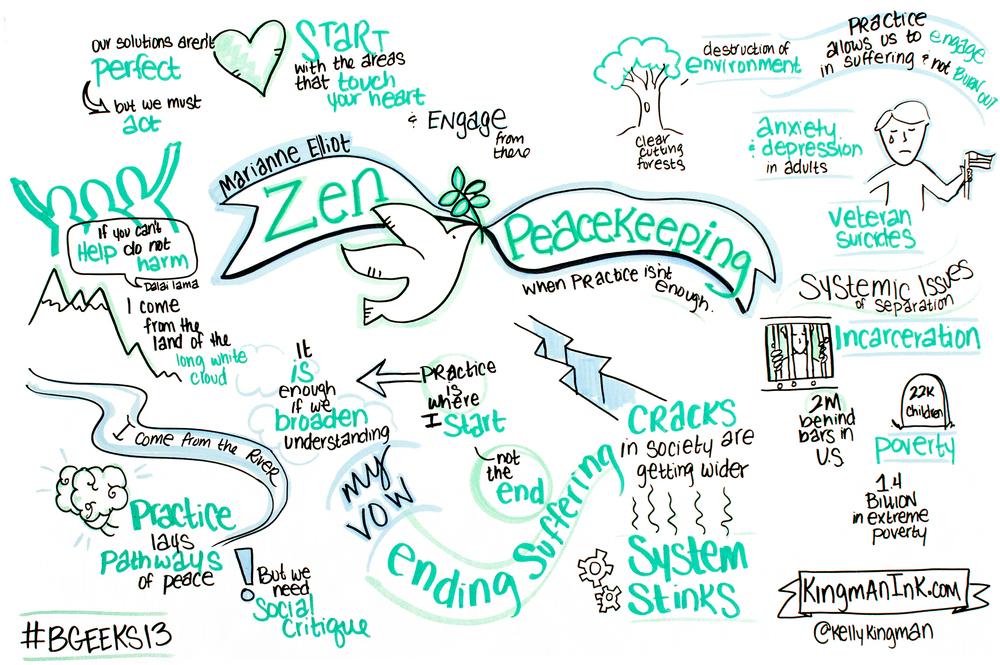 our solutions aren't
perfect
but we must
act
START
with the areas
that touch
your heart
& ENGAGE
from
there
destruction of
environment
clear
cutting
forests
PRACTICE
allows us to engage
in suffering & not BURN OUT
anxiety
& depression
in adults
veteran
suicides
Marianne Elliot
Zen
Peacekeeping
when PRACTICE isn't
enough.
If you can't
Help do not
harm
Dalai lama
I come
from the
land of the
long white
cloud
I come from the RIVER
It
is
enough
if we
broaden
understanding
PRACTICE
is
where
I Start
not
the
end
my
vow
ending Suffering
Practice
lays
Pathways
of peace
! But we
need
Social
Critique
CRACKS
in society are
getting wider
System
Stinks
Systemic Issues
of separation
Incarceration
2M
behind
bars in
U.S
22K
children
poverty
1.4
Billion
in extreme
poverty
#BGEEKS13
KingmanInk.com
@KellyKingman